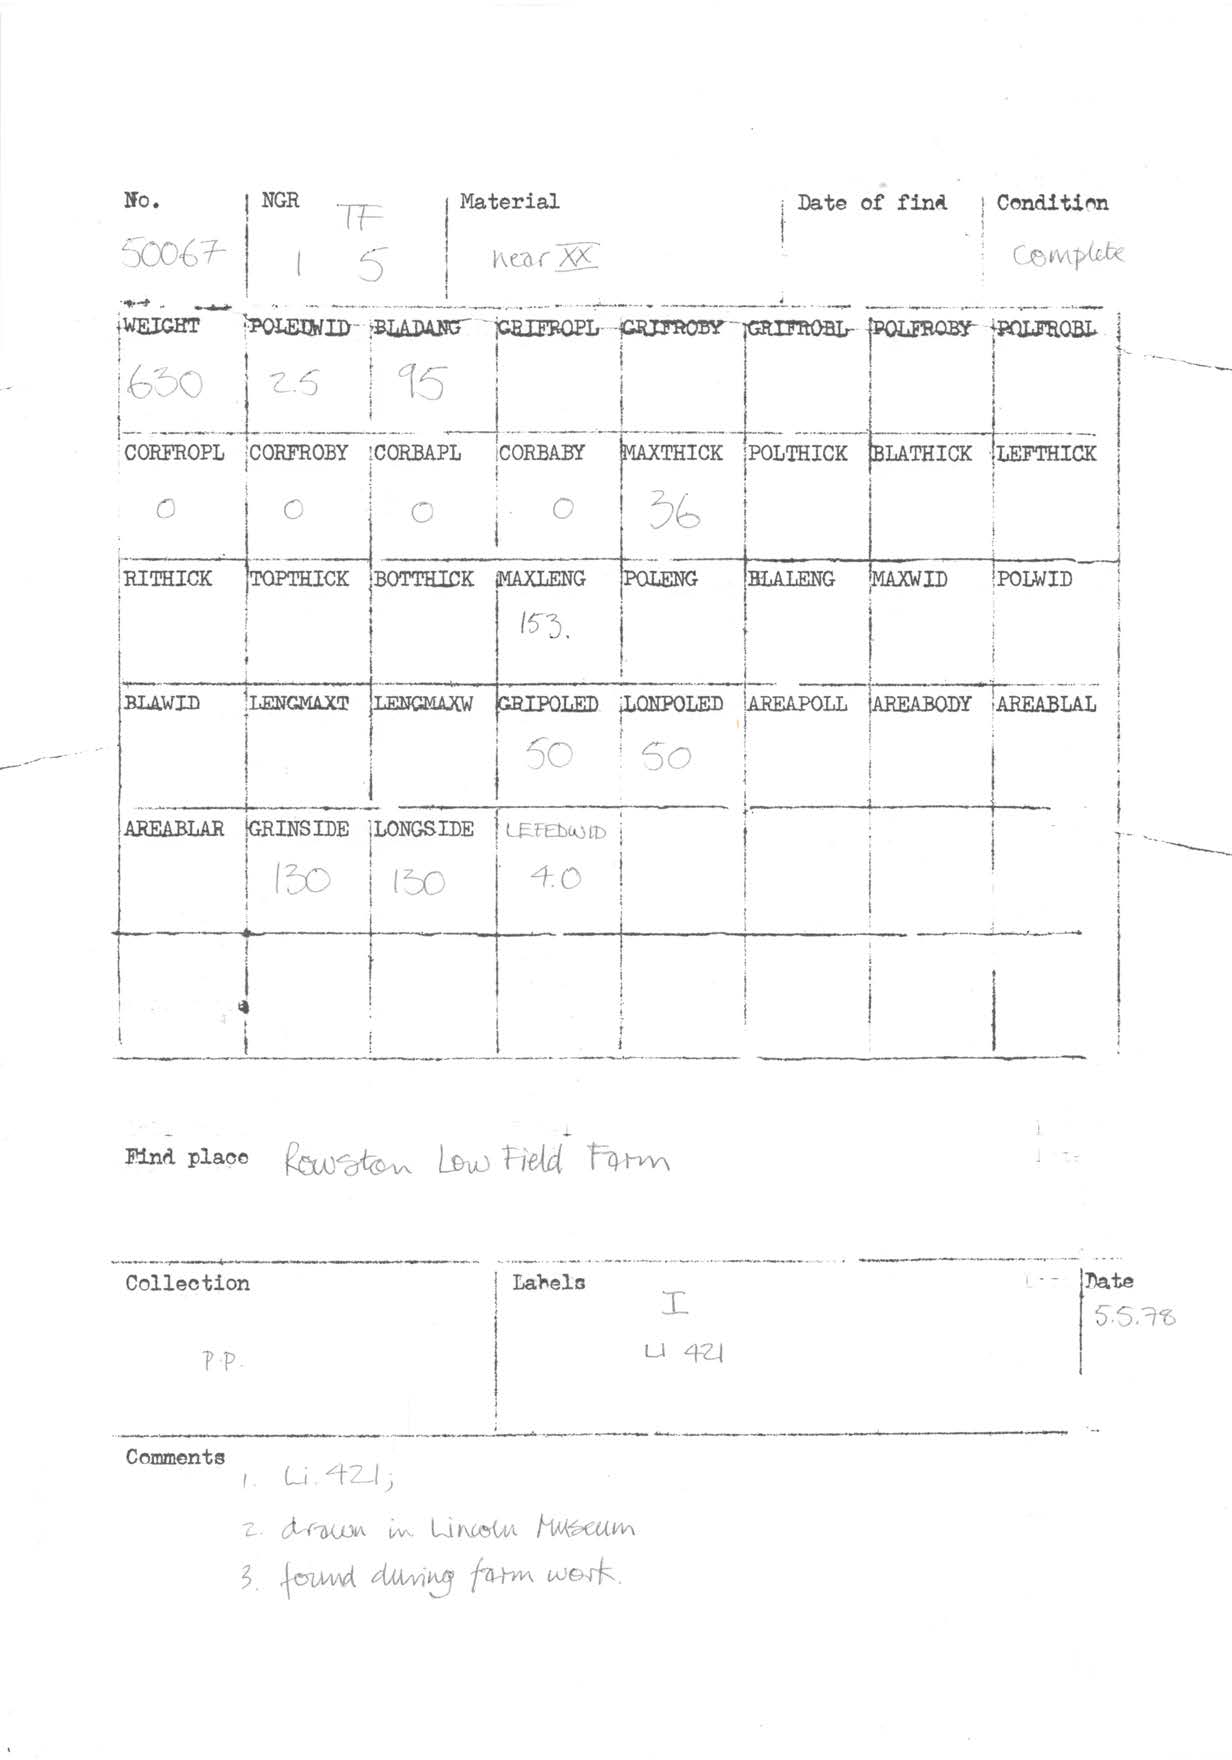 No. NGR Material Date of find Condition
TF
50067 1 5 near XX Complete
WEIGHT POLEDWID BLADANG GRIFROPL GRIFROBY GRIFROBL POLFROBY POLFROBL
630 2.5 95
CORFROPL CORFROBY CORBAPL CORBABY MAXTHICK POLTHICK BLATHICK LEFTHICK
0 0 0 0 36
RITHICK TOPTHICK BOTTHICK MAXLENG POLENG BLALENG MAXWID POLWID
153.
BLAWID LENGMAXT LENGMAXW GRIPOLED LONPOLED AREAPOLL AREABODY AREABLAL
50 50
AREABLAR GRINSIDE LONGSIDE LEFEDWID
130 130 4.0
Find place Rowston Low Field Farm
Collection Labels Date
I 5.5.78
P.P. LI 421
Comments
1. Li. 421;
2. drawn in Lincoln Museum
3. found during farm work.